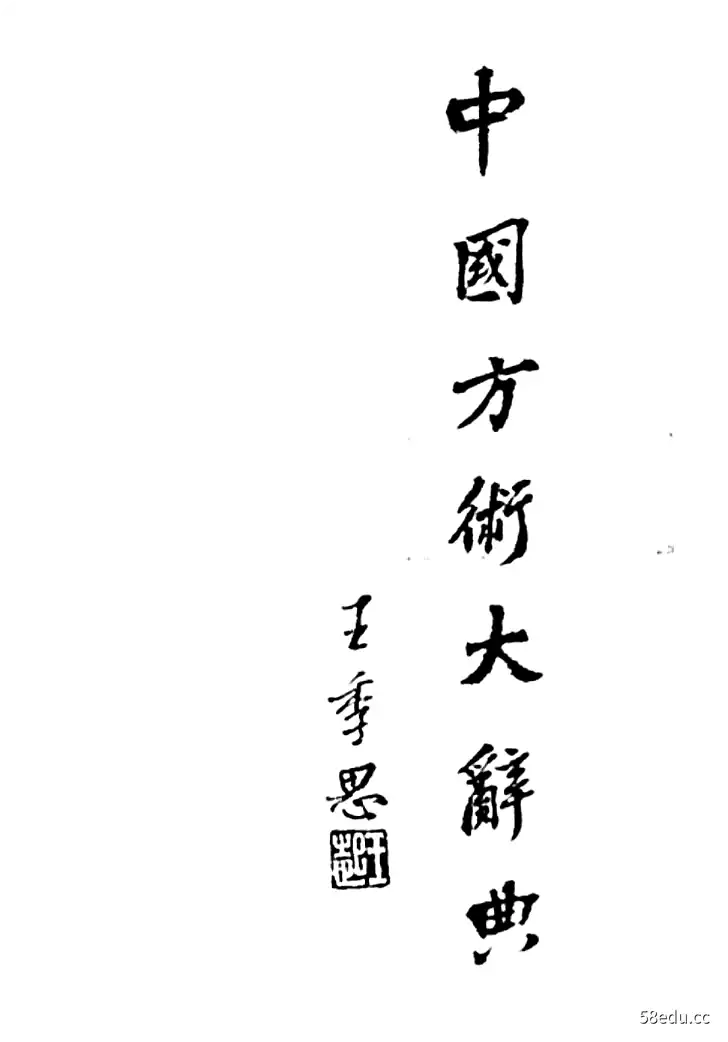 中國方術大辭典
王季思
58edu.cc